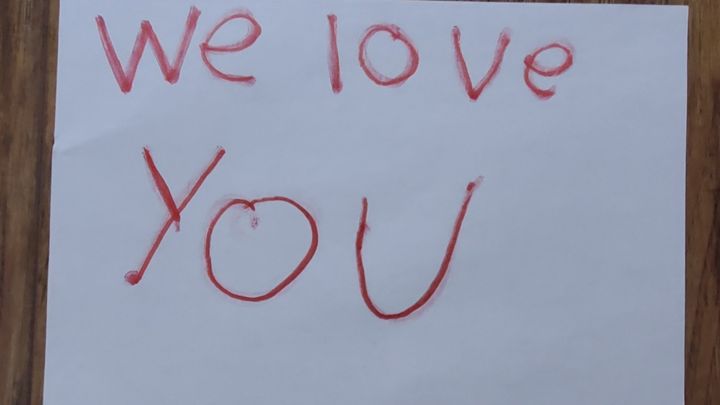 We love
YOU